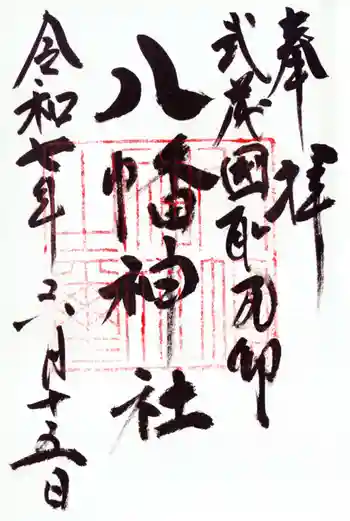 奉拝
武茂國
八幡神社
令和七年六月十五日